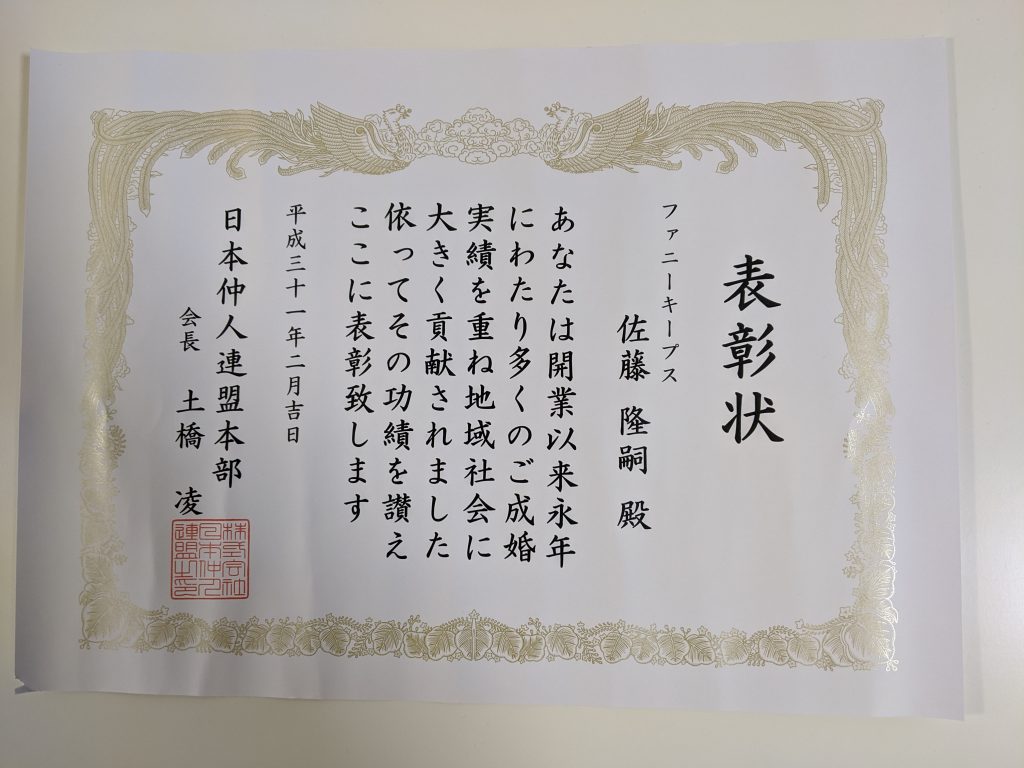 表彰状
ファニーキープス
佐藤 隆嗣 殿
あなたは開業以来永年
にわたり多くのご成婚
実績を重ね地域社会に
大きく貢献されました
依ってその功績を讃え
ここに表彰致します
平成三十一年二月吉日
日本仲人連盟本部
会長 土橋 凌
株式会社
日本仲人
連盟之印